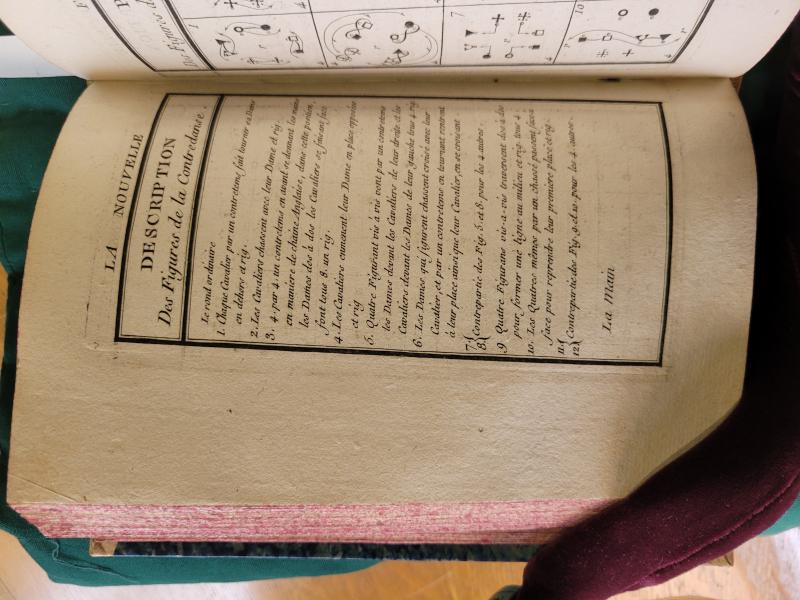 LA NOUVELLE
DESCRIPTION
Des Figures de la Contredanse.
Le rond ordinaire
1. Chaque Cavalier par un contretems fait tourner sa Dame
en déhors et rig.
2. Les Cavaliers chassent avec leur Dame et rig.
3. 4. par 4. un contretems en avant se donnent les mains
en maniere de chaine Anglaise, dans cette position,
les Dames dos à dos les Cavaliers se faisant face
font tous 8. un rig.
4. Les Cavaliers emmenent leur Dame en place opposée
et rig
5. Quatre Figurant vis à vis vont par un contretems
les Dames devant les Cavaliers de leur droite et les
Cavaliers devant les Dames de leur gauche leur 4 rig
6. Les Dames qui figurent chassent croisé avec leur
Cavalier, et par un contretems en tournant rentrent
à leur place ainsi que leur Cavalier, en se croisant
7.{
8.{ Contrepartie des Fig. 5. et 6. pour les 4 autres.
9 Quatre Figurans vis-a-vis traversent dos à dos
pour former une ligne au milieu et rig. tous 4
10. Les Quatres mêmes par un chassé passent face à
face pour reprendre leur premiere place et rig.
11.{
12{ Contrepartie des Fig. 9. et 10. pour les 4. autres.
La Main